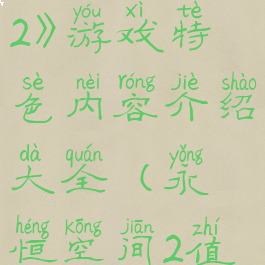 yóu xì tè
2》游戏特
sè nèi róng jiè shào
色内容介绍
dà quán yǒng
大全(永
héng kōng jiān zhí
恒空间2值